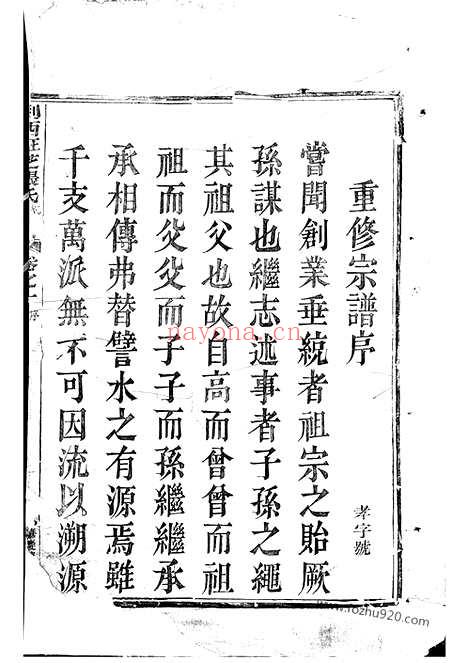 重修宗譜序
孝字號
嘗聞創業垂統者祖宗之貽厥
孫謀也繼志述事者子孫之繩
其祖父也故自高而曾曾而祖
祖而父父而子子而孫繼繼承
承相傳弗替譬水之有源焉雖
千支萬派無不可因流以溯源
張氏
nayona.cn
www.rozhu979.com